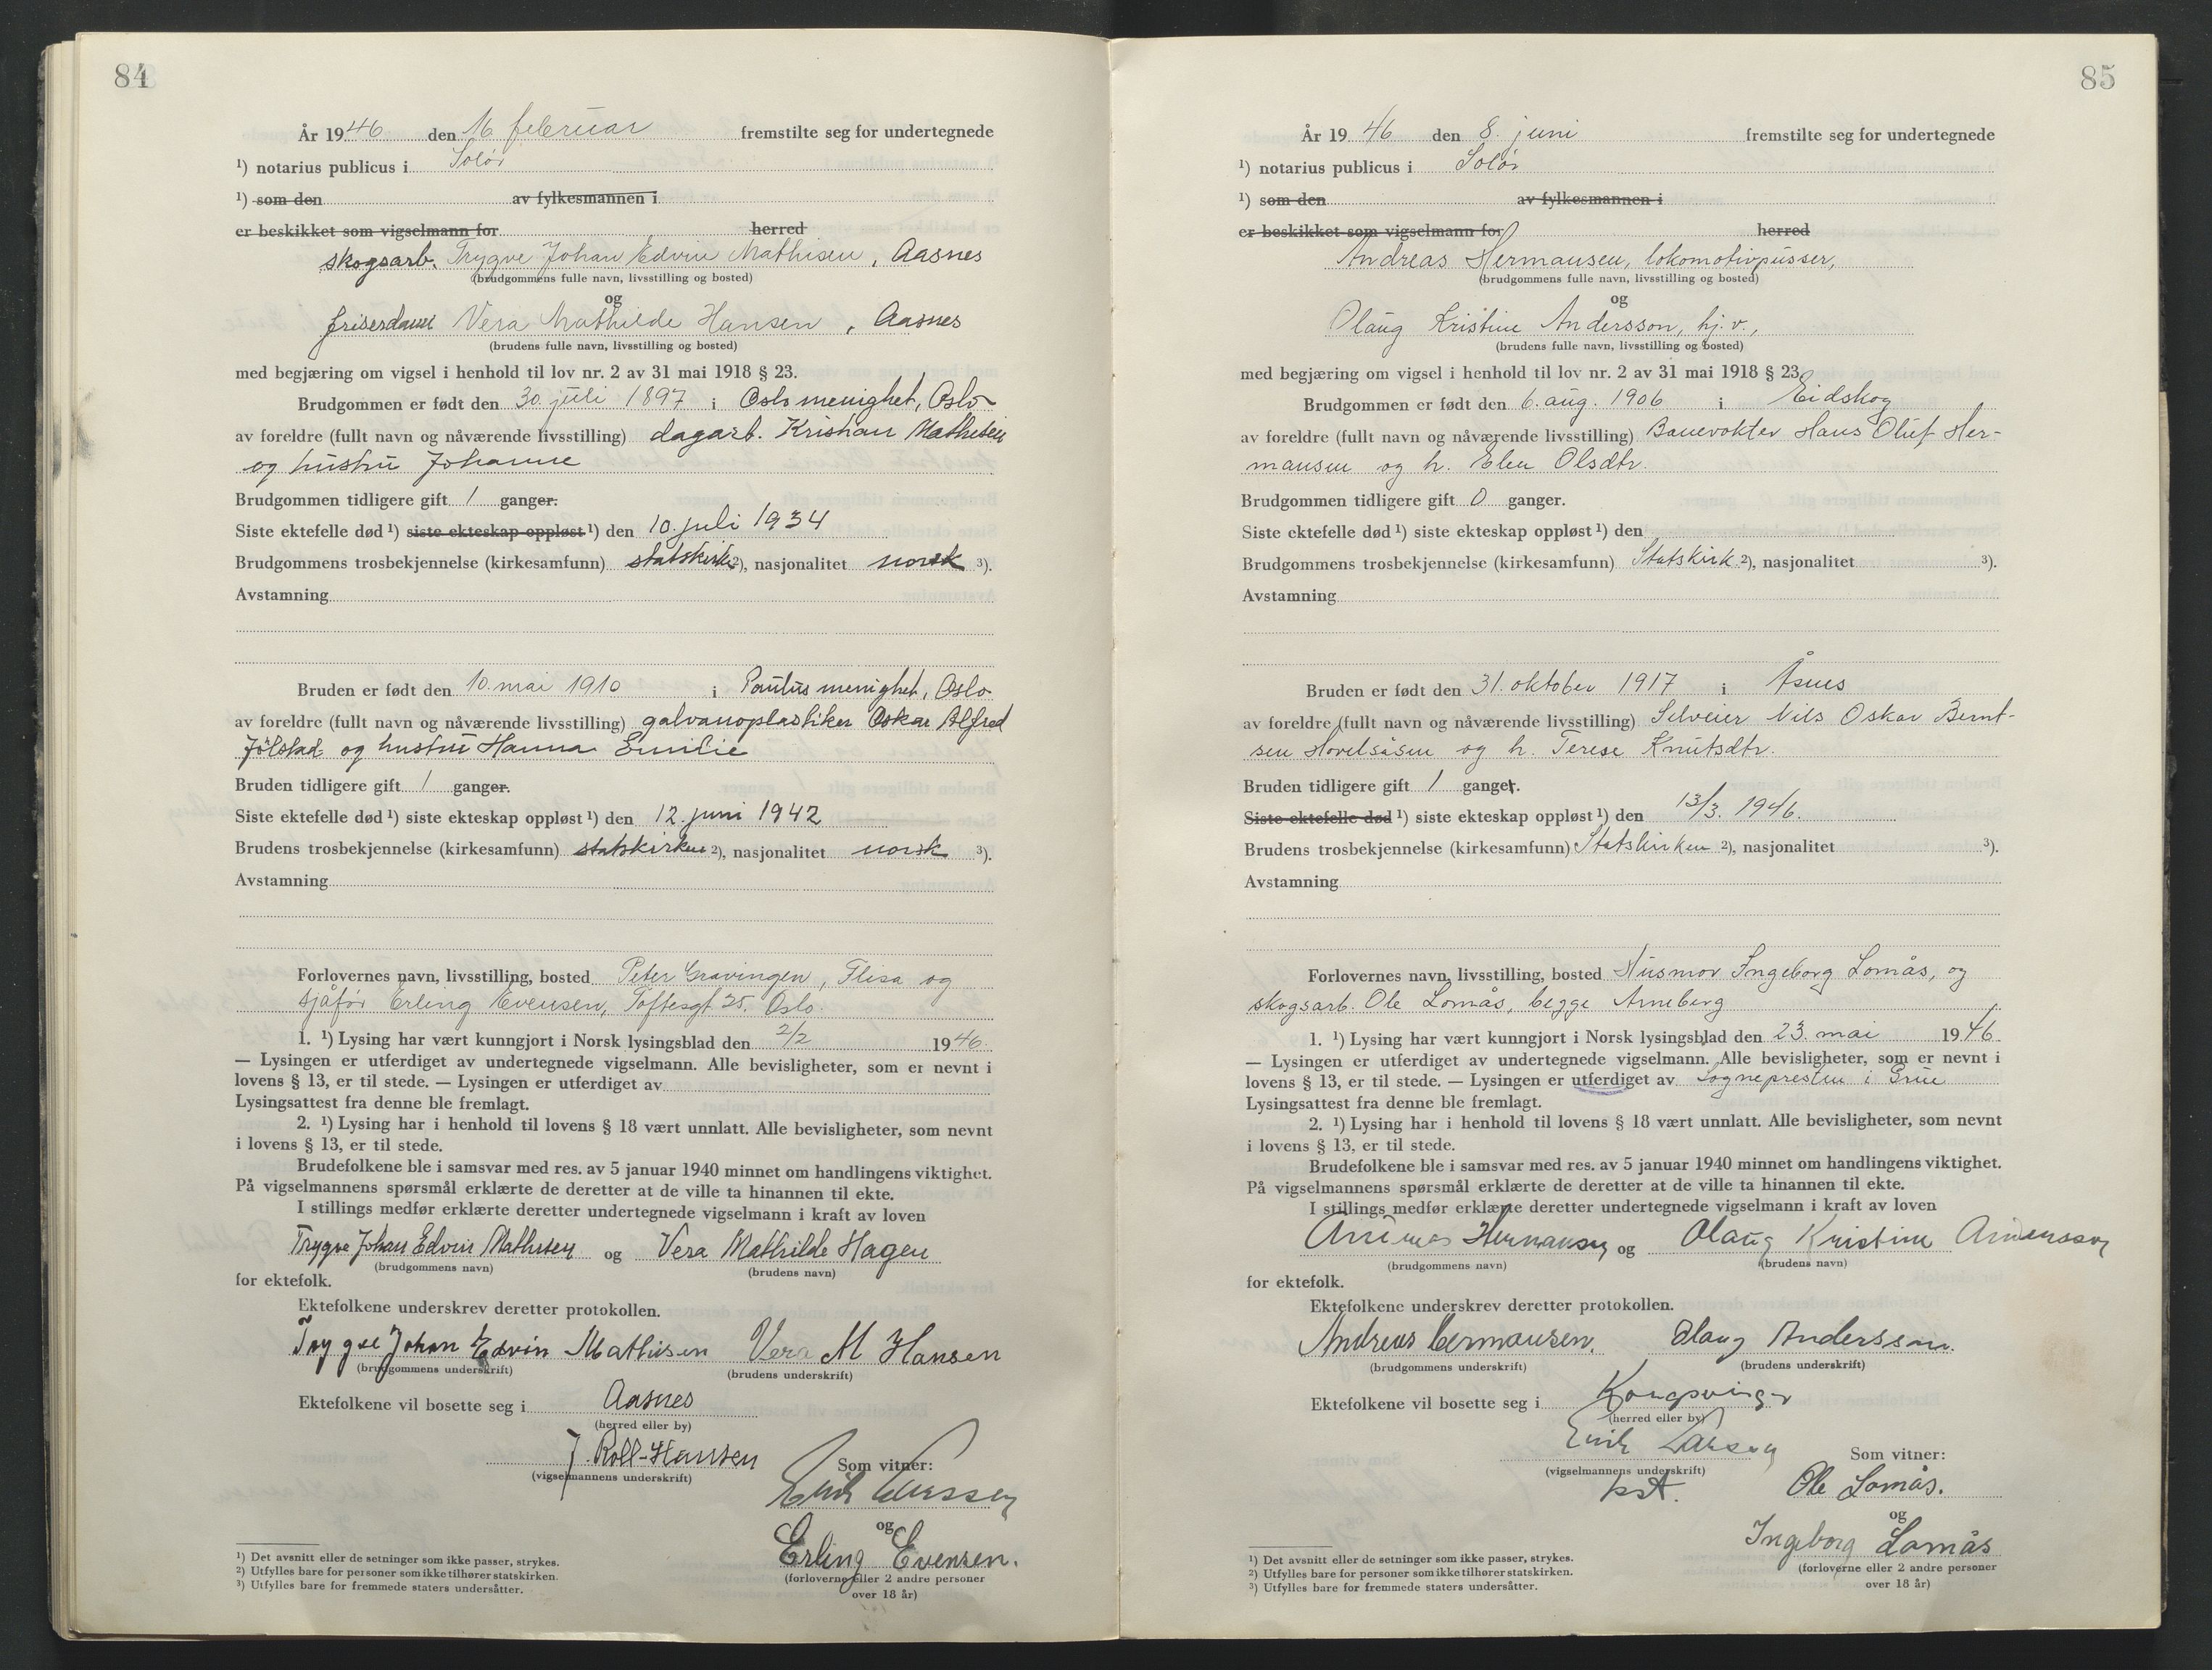 84
År 1946 den 16 februar fremstilte seg for undertegnede
¹) notarius publicus i Solør
¹) som den av fylkesmannen i
er beskikket som vigselmann for herred
skogsarb. Trygve Johan Edvin Mathisen, Aasnes
(brudgommens fulle navn, livsstilling og bosted)
og
friserdame Vera Mathilde Hansen, Aasnes
(brudens fulle navn, livsstilling og bosted)
med begjæring om vigsel i henhold til lov nr. 2 av 31 mai 1918 § 23.
Brudgommen er født den 30. juli 1897 i Oslo menighet, Oslo
av foreldre (fullt navn og nåværende livsstilling) dagarb. Kristian Mathisen
og hustru Johanne
Brudgommen tidligere gift 1 ganger.
Siste ektefelle død ¹) siste ekteskap oppløst ¹) den 10. juli 1934
Brudgommens trosbekjennelse (kirkesamfunn) statskirke ²), nasjonalitet norsk ³).
Avstamning
Bruden er født den 10. mai 1910 i Paulus menighet, Oslo
av foreldre (fullt navn og nåværende livsstilling) galvanoplastiker Oskar Alfred
Jølstad og hustru Hanna Emilie
Bruden tidligere gift 1 ganger.
Siste ektefelle død ¹) siste ekteskap oppløst ¹) den 12. juni 1942
Brudens trosbekjennelse (kirkesamfunn) statskirken ²), nasjonalitet norsk ³).
Avstamning
Forlovernes navn, livsstilling, bosted Peter Gravingen, Flisa og
sjåfør Erling Evensen, Toftesgt 25, Oslo.
1. ¹) Lysing har vært kunngjort i Norsk lysingsblad den 2/2 1946.
— Lysingen er utferdiget av undertegnede vigselmann. Alle bevisligheter, som er nevnt i
lovens § 13, er til stede. — Lysingen er utferdiget av
Lysingsattest fra denne ble fremlagt.
2. ¹) Lysing har i henhold til lovens § 18 vært unnlatt. Alle bevisligheter, som nevnt
i lovens § 13, er til stede.
Brudefolkene ble i samsvar med res. av 5 januar 1940 minnet om handlingens viktighet.
På vigselmannens spørsmål erklærte de deretter at de ville ta hinannen til ekte.
I stillings medfør erklærte deretter undertegnede vigselmann i kraft av loven
Trygve Johan Edvin Mathisen og Vera Mathilde Hagen
(brudgommens navn) (brudens navn)
for ektefolk.
Ektefolkene underskrev deretter protokollen.
Trygve Johan Edvin Mathisen Vera M Hansen
(brudgommens underskrift) (brudens underskrift)
Ektefolkene vil bosette seg i Aasnes
(herred eller by)
J. Roll-Hansen
(vigselmannens underskrift)
Som vitner:
og
Erling Evensen.
(forloverne eller 2 andre personer
over 18 år)
¹) Det avsnitt eller de setninger som ikke passer, strykes.
²) Utfylles bare for personer som ikke tilhører statskirken.
³) Utfylles bare for fremmede staters undersåtter.
85
År 1946 den 8. juni fremstilte seg for undertegnede
¹) notarius publicus i Solør
¹) som den av fylkesmannen i
er beskikket som vigselmann for herred
Andreas Hermansen, lokomotivpusser,
(brudgommens fulle navn, livsstilling og bosted)
og
Olaug Kristine Andersson, hj. v.,
(brudens fulle navn, livsstilling og bosted)
med begjæring om vigsel i henhold til lov nr. 2 av 31 mai 1918 § 23.
Brudgommen er født den 6. aug. 1906 i Eidskog
av foreldre (fullt navn og nåværende livsstilling) Banevokter Hans Oluf Her-
mansen og h. Elen Olsdtr.
Brudgommen tidligere gift 0 ganger.
Siste ektefelle død ¹) siste ekteskap oppløst ¹) den
Brudgommens trosbekjennelse (kirkesamfunn) Statskirk. ²), nasjonalitet ³).
Avstamning
Bruden er født den 31. oktober 1917 i Åsnes
av foreldre (fullt navn og nåværende livsstilling) Selveier Nils Oskar Bernt-
sen Hovelsåsen og h. Terese Knutsdtr.
Bruden tidligere gift 1 ganger.
Siste ektefelle død ¹) siste ekteskap oppløst ¹) den 13/3. 1946.
Brudens trosbekjennelse (kirkesamfunn) Statskirken ²), nasjonalitet ³).
Avstamning
Forlovernes navn, livsstilling, bosted Husmor Ingeborg Lomås, og
skogsarb. Ole Lomås, begge Arneberg
1. ¹) Lysing har vært kunngjort i Norsk lysingsblad den 23. mai 1946
— Lysingen er utferdiget av undertegnede vigselmann. Alle bevisligheter, som er nevnt i
lovens § 13, er til stede. — Lysingen er utferdiget av Sognepresten i Grue
Lysingsattest fra denne ble fremlagt.
2. ¹) Lysing har i henhold til lovens § 18 vært unnlatt. Alle bevisligheter, som nevnt
i lovens § 13, er til stede.
Brudefolkene ble i samsvar med res. av 5 januar 1940 minnet om handlingens viktighet.
På vigselmannens spørsmål erklærte de deretter at de ville ta hinannen til ekte.
I stillings medfør erklærte deretter undertegnede vigselmann i kraft av loven
Andreas Hermansen og Olaug Kristine Andersson
(brudgommens navn) (brudens navn)
for ektefolk.
Ektefolkene underskrev deretter protokollen.
Andreas Hermansen. Olaug Andersson.
(brudgommens underskrift) (brudens underskrift)
Ektefolkene vil bosette seg i Kongsvinger
(herred eller by)
Erik Larsen
(vigselmannens underskrift)
kst.
Som vitner:
Ole Lomås.
og
Ingeborg Lomås
(forloverne eller 2 andre personer
over 18 år)
¹) Det avsnitt eller de setninger som ikke passer, strykes.
²) Utfylles bare for personer som ikke tilhører statskirken.
³) Utfylles bare for fremmede staters undersåtter.